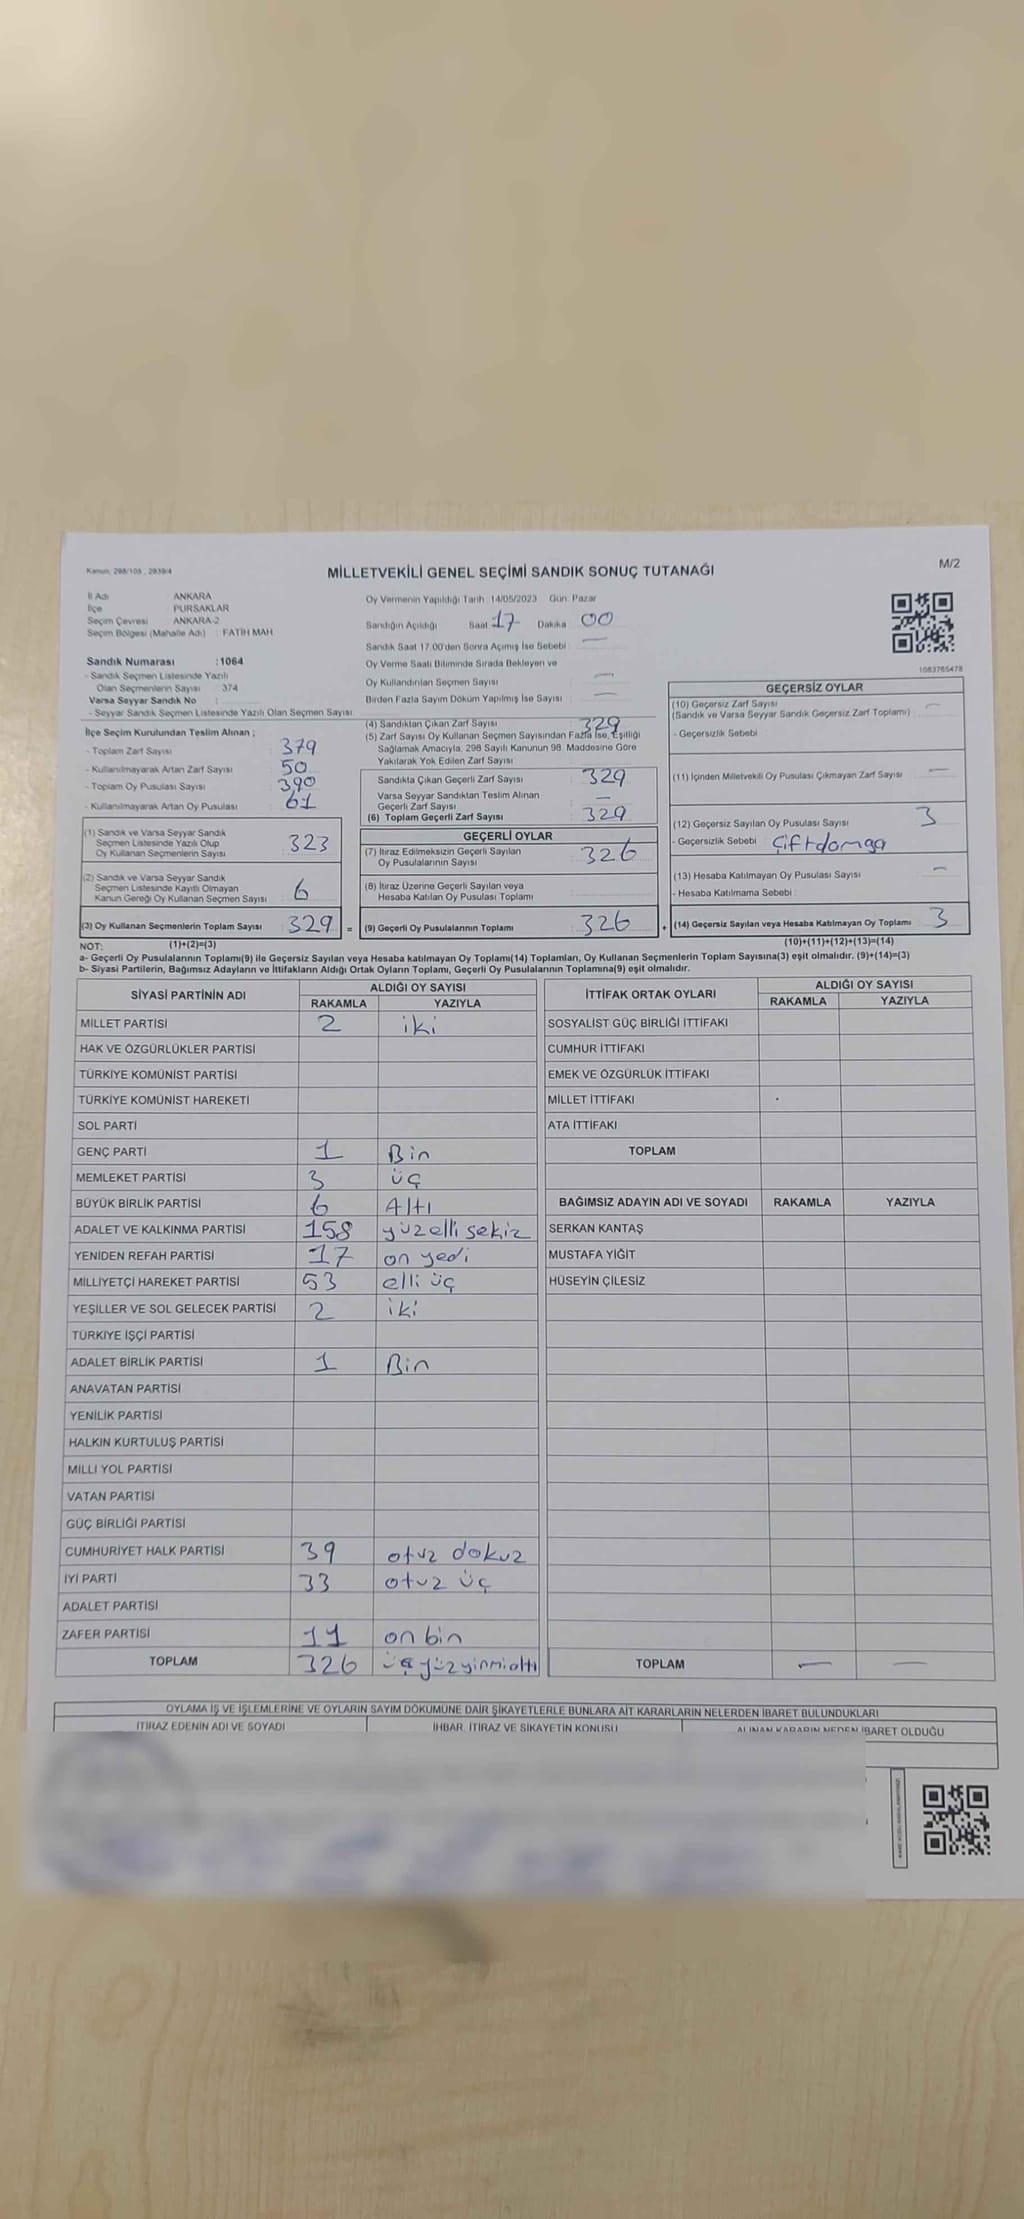 Kanun, 298/105 , 2839/4
MİLLETVEKİLİ GENEL SEÇİMİ SANDIK SONUÇ TUTANAĞI
M/2
İl Adı ANKARA
İlçe PURSAKLAR
Seçim Çevresi ANKARA-2
Seçim Bölgesi (Mahalle Adı) : FATİH MAH
Sandık Numarası :1064
- Sandık Seçmen Listesinde Yazılı
Olan Seçmenlerin Sayısı 374
Varsa Seyyar Sandık No :
- Seyyar Sandık Seçmen Listesinde Yazılı Olan Seçmen Sayısı:
İlçe Seçim Kurulundan Teslim Alınan ;
- Toplam Zarf Sayısı 379
- Kullanılmayarak Artan Zarf Sayısı 50
- Toplam Oy Pusulası Sayısı 390
- Kullanılmayarak Artan Oy Pusulası 61
(1) Sandık ve Varsa Seyyar Sandık
Seçmen Listesinde Yazılı Olup
Oy Kullanan Seçmenlerin Sayısı 323
(2) Sandık ve Varsa Seyyar Sandık
Seçmen Listesinde Kayıtlı Olmayan
Kanun Gereği Oy Kullanan Seçmen Sayısı 6
(3) Oy Kullanan Seçmenlerin Toplam Sayısı 329 =
Oy Vermenin Yapıldığı Tarih :14/05/2023 Gün: Pazar
Sandığın Açıldığı Saat 17 Dakika 00
Sandık Saat 17.00'den Sonra Açılmış İse Sebebi : —
Oy Verme Saati Bitiminde Sırada Bekleyen ve
Oy Kullandırılan Seçmen Sayısı —
Birden Fazla Sayım Döküm Yapılmış İse Sayısı —
(4) Sandıktan Çıkan Zarf Sayısı 329
(5) Zarf Sayısı Oy Kullanan Seçmen Sayısından Fazla İse, Eşitliği
Sağlamak Amacıyla, 298 Sayılı Kanunun 98. Maddesine Göre
Yakılarak Yok Edilen Zarf Sayısı
Sandıkta Çıkan Geçerli Zarf Sayısı 329
Varsa Seyyar Sandıktan Teslim Alınan
Geçerli Zarf Sayısı —
(6) Toplam Geçerli Zarf Sayısı 329
GEÇERLİ OYLAR
(7) İtiraz Edilmeksizin Geçerli Sayılan
Oy Pusulalarının Sayısı 326
(8) İtiraz Üzerine Geçerli Sayılan veya
Hesaba Katılan Oy Pusulası Toplamı
(9) Geçerli Oy Pusulalarının Toplamı 326 +
1083765478
GEÇERSİZ OYLAR
(10) Geçersiz Zarf Sayısı
(Sandık ve Varsa Seyyar Sandık Geçersiz Zarf Toplamı) : —
- Geçersizlik Sebebi :
(11) İçinden Milletvekili Oy Pusulası Çıkmayan Zarf Sayısı —
(12) Geçersiz Sayılan Oy Pusulası Sayısı 3
- Geçersizlik Sebebi çiftdamga
(13) Hesaba Katılmayan Oy Pusulası Sayısı —
- Hesaba Katılmama Sebebi :
(14) Geçersiz Sayılan veya Hesaba Katılmayan Oy Toplamı 3
NOT: (1)+(2)=(3) (10)+(11)+(12)+(13)=(14)
a- Geçerli Oy Pusulalarının Toplamı(9) ile Geçersiz Sayılan veya Hesaba katılmayan Oy Toplamı(14) Toplamları, Oy Kullanan Seçmenlerin Toplam Sayısına(3) eşit olmalıdır. (9)+(14)=(3)
b- Siyasi Partilerin, Bağımsız Adayların ve İttifakların Aldığı Ortak Oyların Toplamı, Geçerli Oy Pusulalarının Toplamına(9) eşit olmalıdır.
SİYASİ PARTİNİN ADI ALDIĞI OY SAYISI
RAKAMLA YAZIYLA
MİLLET PARTİSİ 2 iki
HAK VE ÖZGÜRLÜKLER PARTİSİ
TÜRKİYE KOMÜNİST PARTİSİ
TÜRKİYE KOMÜNİST HAREKETİ
SOL PARTİ
GENÇ PARTİ 1 Bin
MEMLEKET PARTİSİ 3 üç
BÜYÜK BİRLİK PARTİSİ 6 Altı
ADALET VE KALKINMA PARTİSİ 158 yüzelli sekiz
YENİDEN REFAH PARTİSİ 17 on yedi
MİLLİYETÇİ HAREKET PARTİSİ 53 elli üç
YEŞİLLER VE SOL GELECEK PARTİSİ 2 iki
TÜRKİYE İŞÇİ PARTİSİ
ADALET BİRLİK PARTİSİ 1 Bin
ANAVATAN PARTİSİ
YENİLİK PARTİSİ
HALKIN KURTULUŞ PARTİSİ
MİLLİ YOL PARTİSİ
VATAN PARTİSİ
GÜÇ BİRLİĞİ PARTİSİ
CUMHURİYET HALK PARTİSİ 39 otuz dokuz
İYİ PARTİ 33 otuz üç
ADALET PARTİSİ
ZAFER PARTİSİ 11 on bin
TOPLAM 326 üçyüzyirmialtı
İTTİFAK ORTAK OYLARI ALDIĞI OY SAYISI
RAKAMLA YAZIYLA
SOSYALİST GÜÇ BİRLİĞİ İTTİFAKI
CUMHUR İTTİFAKI
EMEK VE ÖZGÜRLÜK İTTİFAKI
MİLLET İTTİFAKI
ATA İTTİFAKI
TOPLAM
BAĞIMSIZ ADAYIN ADI VE SOYADI RAKAMLA YAZIYLA
SERKAN KANTAŞ
MUSTAFA YİĞİT
HÜSEYİN ÇİLESİZ
TOPLAM — —
OYLAMA İŞ VE İŞLEMLERİNE VE OYLARIN SAYIM DÖKÜMÜNE DAİR ŞİKAYETLERLE BUNLARA AİT KARARLARIN NELERDEN İBARET BULUNDUKLARI
İTİRAZ EDENİN ADI VE SOYADI İHBAR, İTİRAZ VE ŞİKAYETİN KONUSU ALINAN KARARIN NEDEN İBARET OLDUĞU